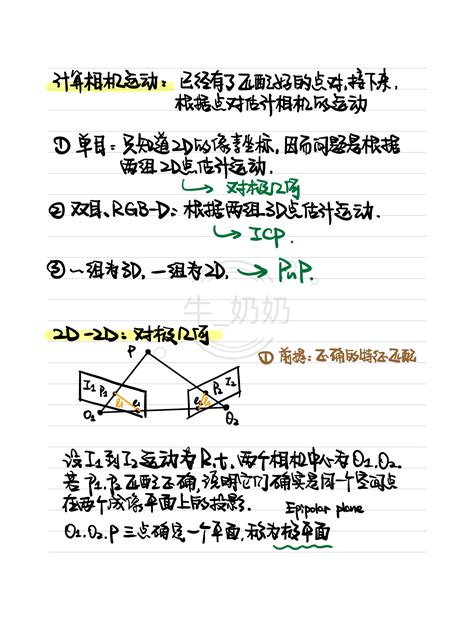 计算相机运动：已经有了匹配好的点对，接下来，
根据点对估计相机的运动
① 单目：只知道2D的像素坐标，因而问题是根据
两组2D点估计运动．
↳ 对极几何
② 双目、RGB-D：根据两组3D点估计运动．
↳ ICP．
③ 一组为3D，一组为2D， → PnP．
牛_奶奶
2D-2D：对极几何
① 前提：正确的特征匹配
P
I₁ P₁ P₂ I₂
l₁ e₁ e₂ l₂
O₁ O₂
设I₁到I₂运动为R，t，两个相机中心为O₁.O₂.
若P₁.P₂匹配正确，说明它们确实是同一个空间点
在两个成像平面上的投影．
Epipolar plane
O₁.O₂.P三点确定一个平面，称为极平面